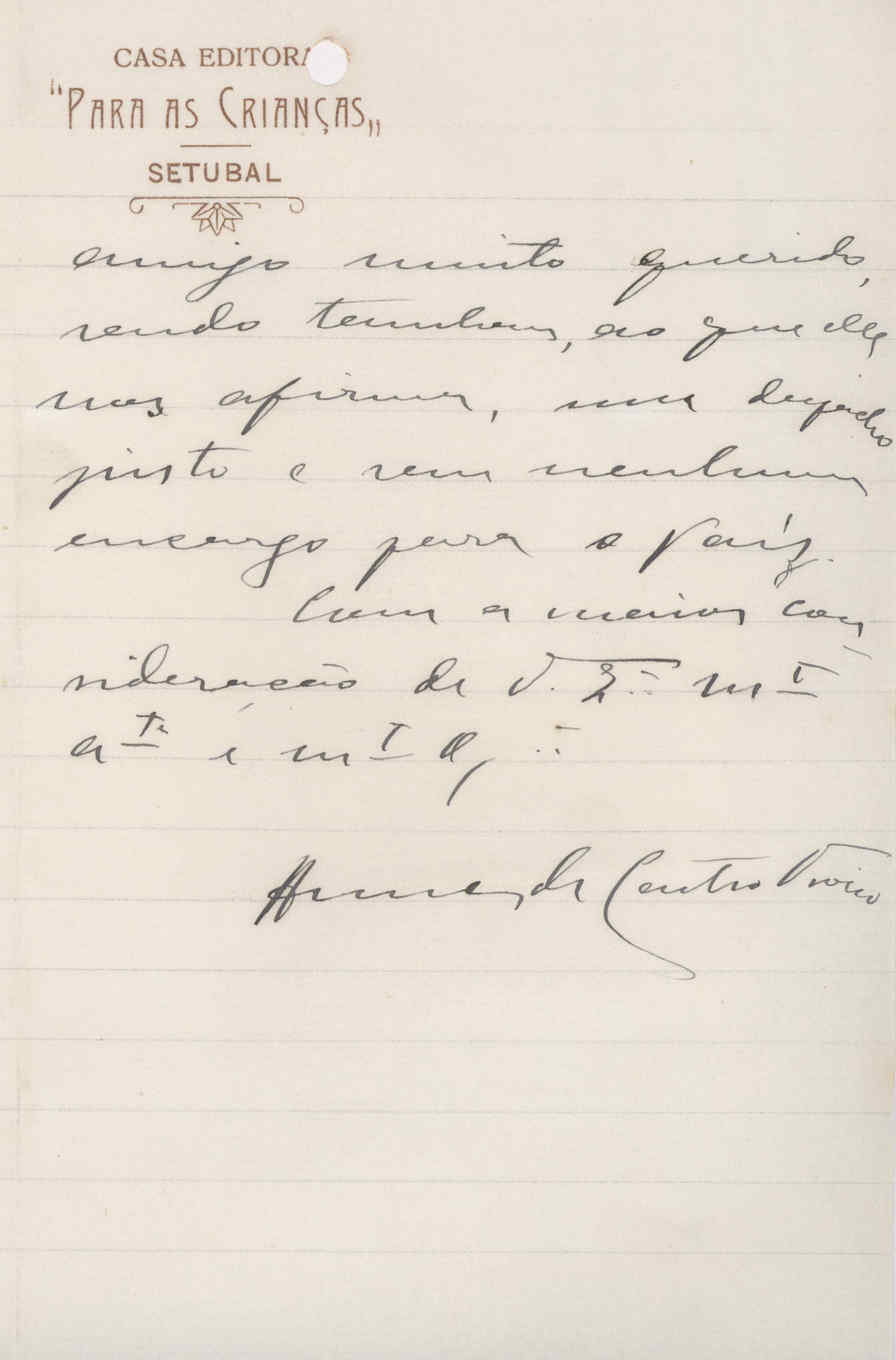 CASA EDITORA
"PARA AS CRIANÇAS„
SETUBAL
amigo muito querido,
sendo tambem, ao que elle
nos afirma, um despacho
justo e sem nenhum
encargo para o Paíz.
Com a maior con
sideração de V. Ex.ª m.t
at.te e m.t
Anna de Castro Osorio